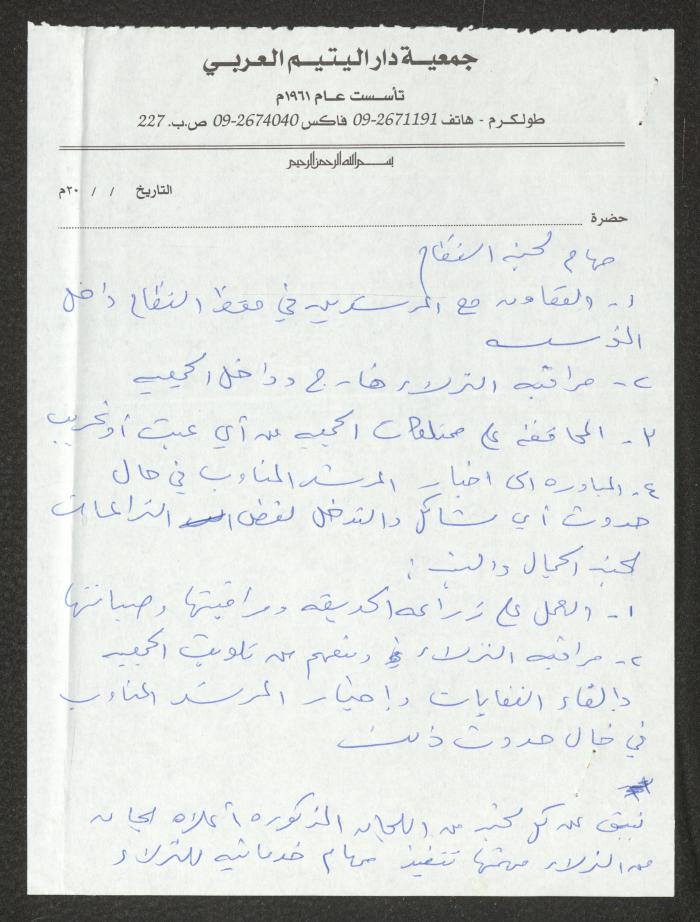 جمعية دار اليتيم العربي
تأسست عام ١٩٦١م
طولكرم - هاتف 2671191-09 فاكس 2674040-09 ص.ب. 227
بسم الله الرحمن الرحيم
التاريخ / / ٢٠م
حضرة
مهام لجنة النظام
١- التعاون مع المرشدين في حفظ النظام داخل
المؤسسه
٢- مراقبه النزلاء خارج وداخل الجمعيه
٣- المحافظه على ممتلكات الجمعيه من أي عبث أو تخريب
٤- المبادره الى اخبار المرشد المناوب في حال
حدوث أي مشاكل والتدخل لفض النزاعات
لجنه الجمال والبيئه :
١- العمل على زراعه الحديقه ومراقبتها وصيانتها
٢- مراقبه النزلاء ومنعهم من تلويث الجمعيه
والقاء النفايات وإخبار المرشد المناوب
في حال حدوث ذلك
ينبثق عن كل لجنه من اللجان المذكوره أعلاه لجان
من النزلاء مهمتها تنفيذ مهام خدماتيه للنزلاء